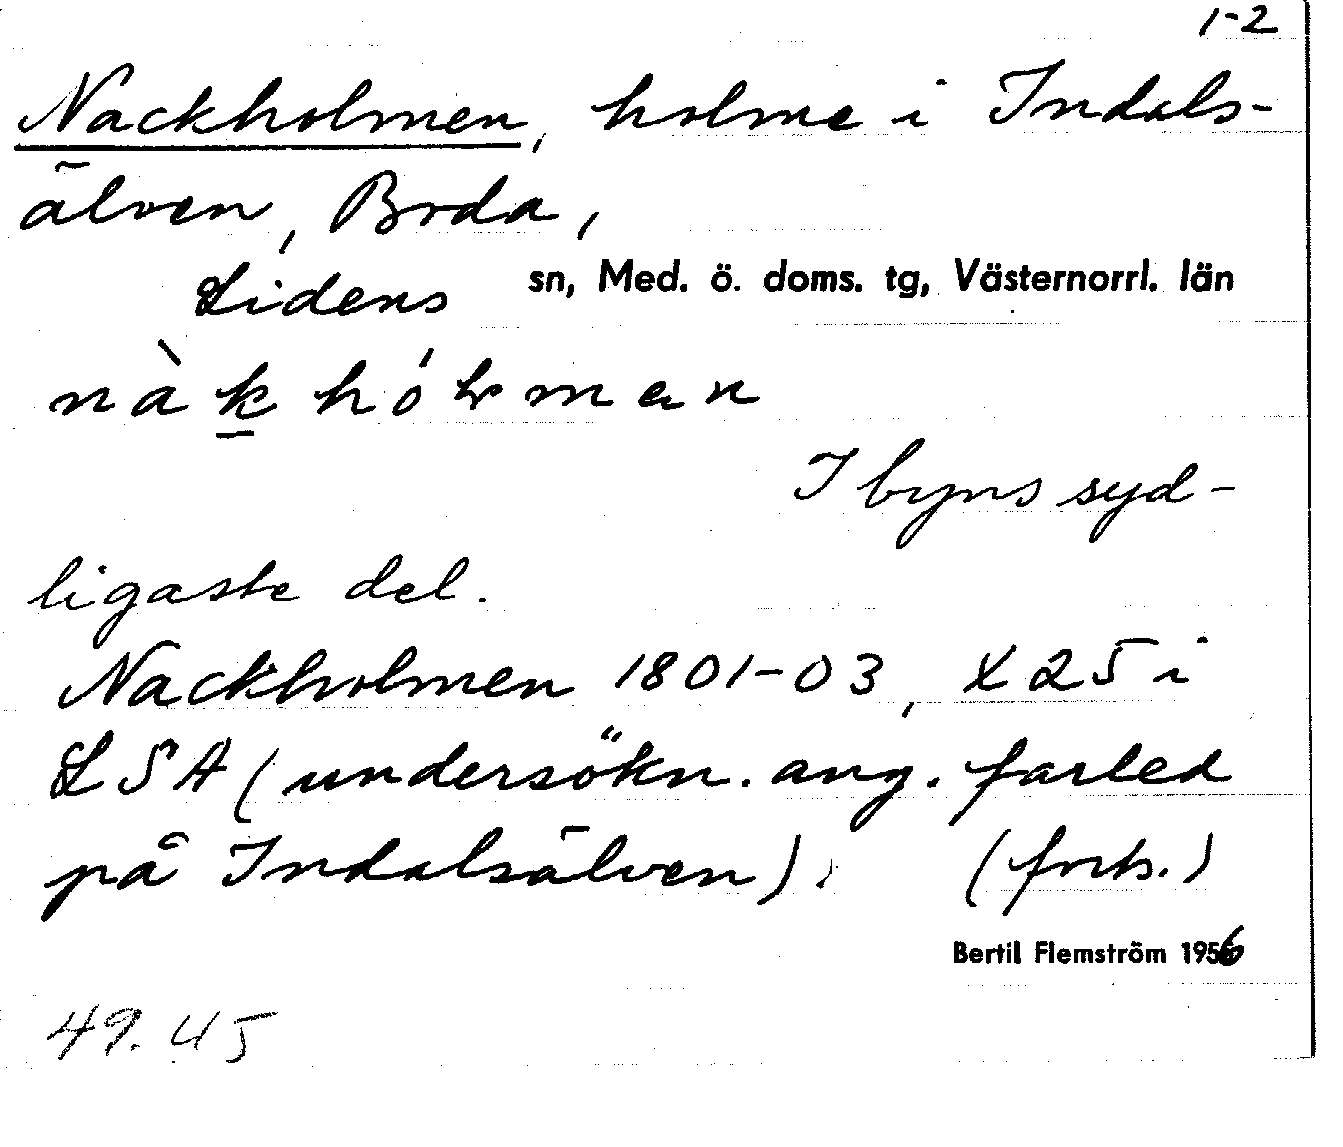 1-2
Nackholmen, holme i Indals-
älven, Boda,
Lidens sn, Med. ö. doms. tg, Västernorrl. län
I byns syd-
ligaste del.
Nackholmen 1801-03, X 25 i
LSA (undersökn. ang. farled
på Indalsälven). (forts.)
Bertil Flemström 1956
49.45